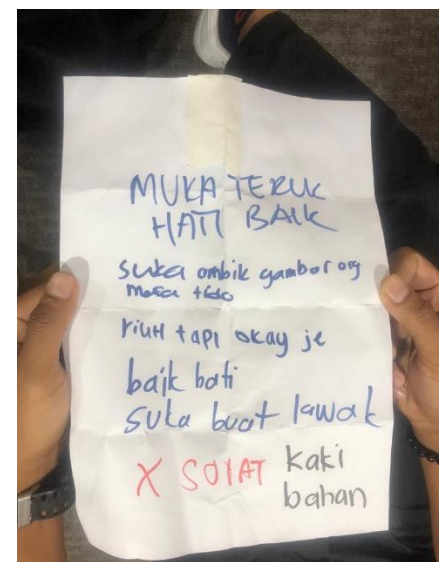 MUKA TERUK
HATI BAIK
suka ambik gambar org
masa tido
riuH tapi okay je
baik hati
suka buat lawak
X SOYAT kaki
bahan